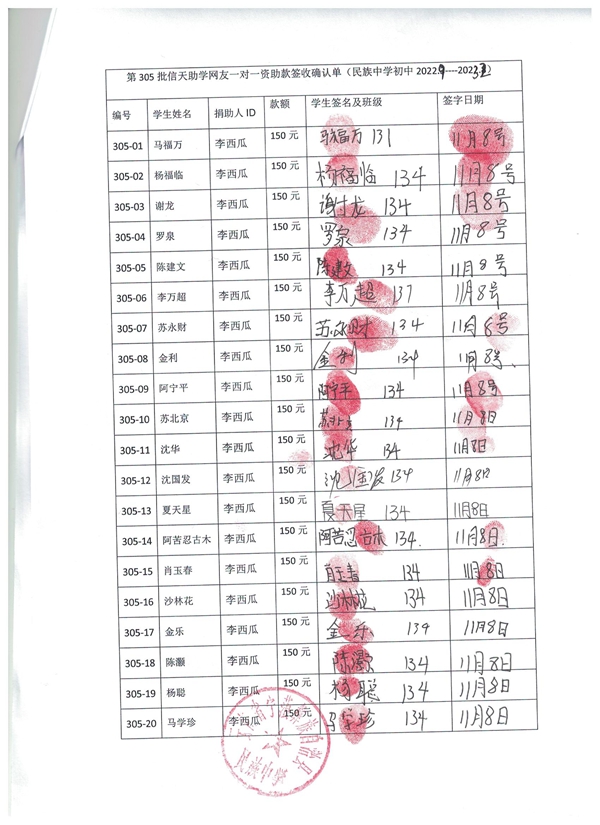 第 305 批信天助学网友一对一资助款签收确认单（民族中学初中 2022.9----2022
编号 学生姓名 捐助人 ID 款额 学生签名及班级 签字日期
305-01 马福万 李西瓜 150 元 马福万 131 11月8号
305-02 杨福临 李西瓜 150 元 杨福临 134 11月8号
305-03 谢龙 李西瓜 150 元 谢龙 134 11月8号
305-04 罗泉 李西瓜 150 元 罗泉 134 11月8号
305-05 陈建文 李西瓜 150 元 陈建文 134 11月8号
305-06 李万超 李西瓜 150 元 李万超 137 11月8号
305-07 苏永财 李西瓜 150 元 苏永财 134 11月8号
305-08 金利 李西瓜 150 元 金利 134 11月8号.
305-09 阿宁平 李西瓜 150 元 阿宁平 134 11月8号
305-10 苏北京 李西瓜 150 元 苏北京 134 11月8日
305-11 沈华 李西瓜 150 元 沈华 134 11月8日
305-12 沈国发 李西瓜 150 元 沈国发 134 11月8日
305-13 夏天星 李西瓜 150 元 夏天星 134 11月8日
305-14 阿苦忍古木 李西瓜 150 元 阿苦忍古木 134. 11月8日.
305-15 肖玉春 李西瓜 150 元 肖玉春 134 11月8日
305-16 沙林花 李西瓜 150 元 沙林花 134 11月8日
305-17 金乐 李西瓜 150 元 金乐 134 11月8日
305-18 陈灏 李西瓜 150 元 陈灏 134 11月8日
305-19 杨聪 李西瓜 150 元 杨聪 134 11月8日
305-20 马学珍 李西瓜 150 元 马学珍 134 11月8日
民族中学